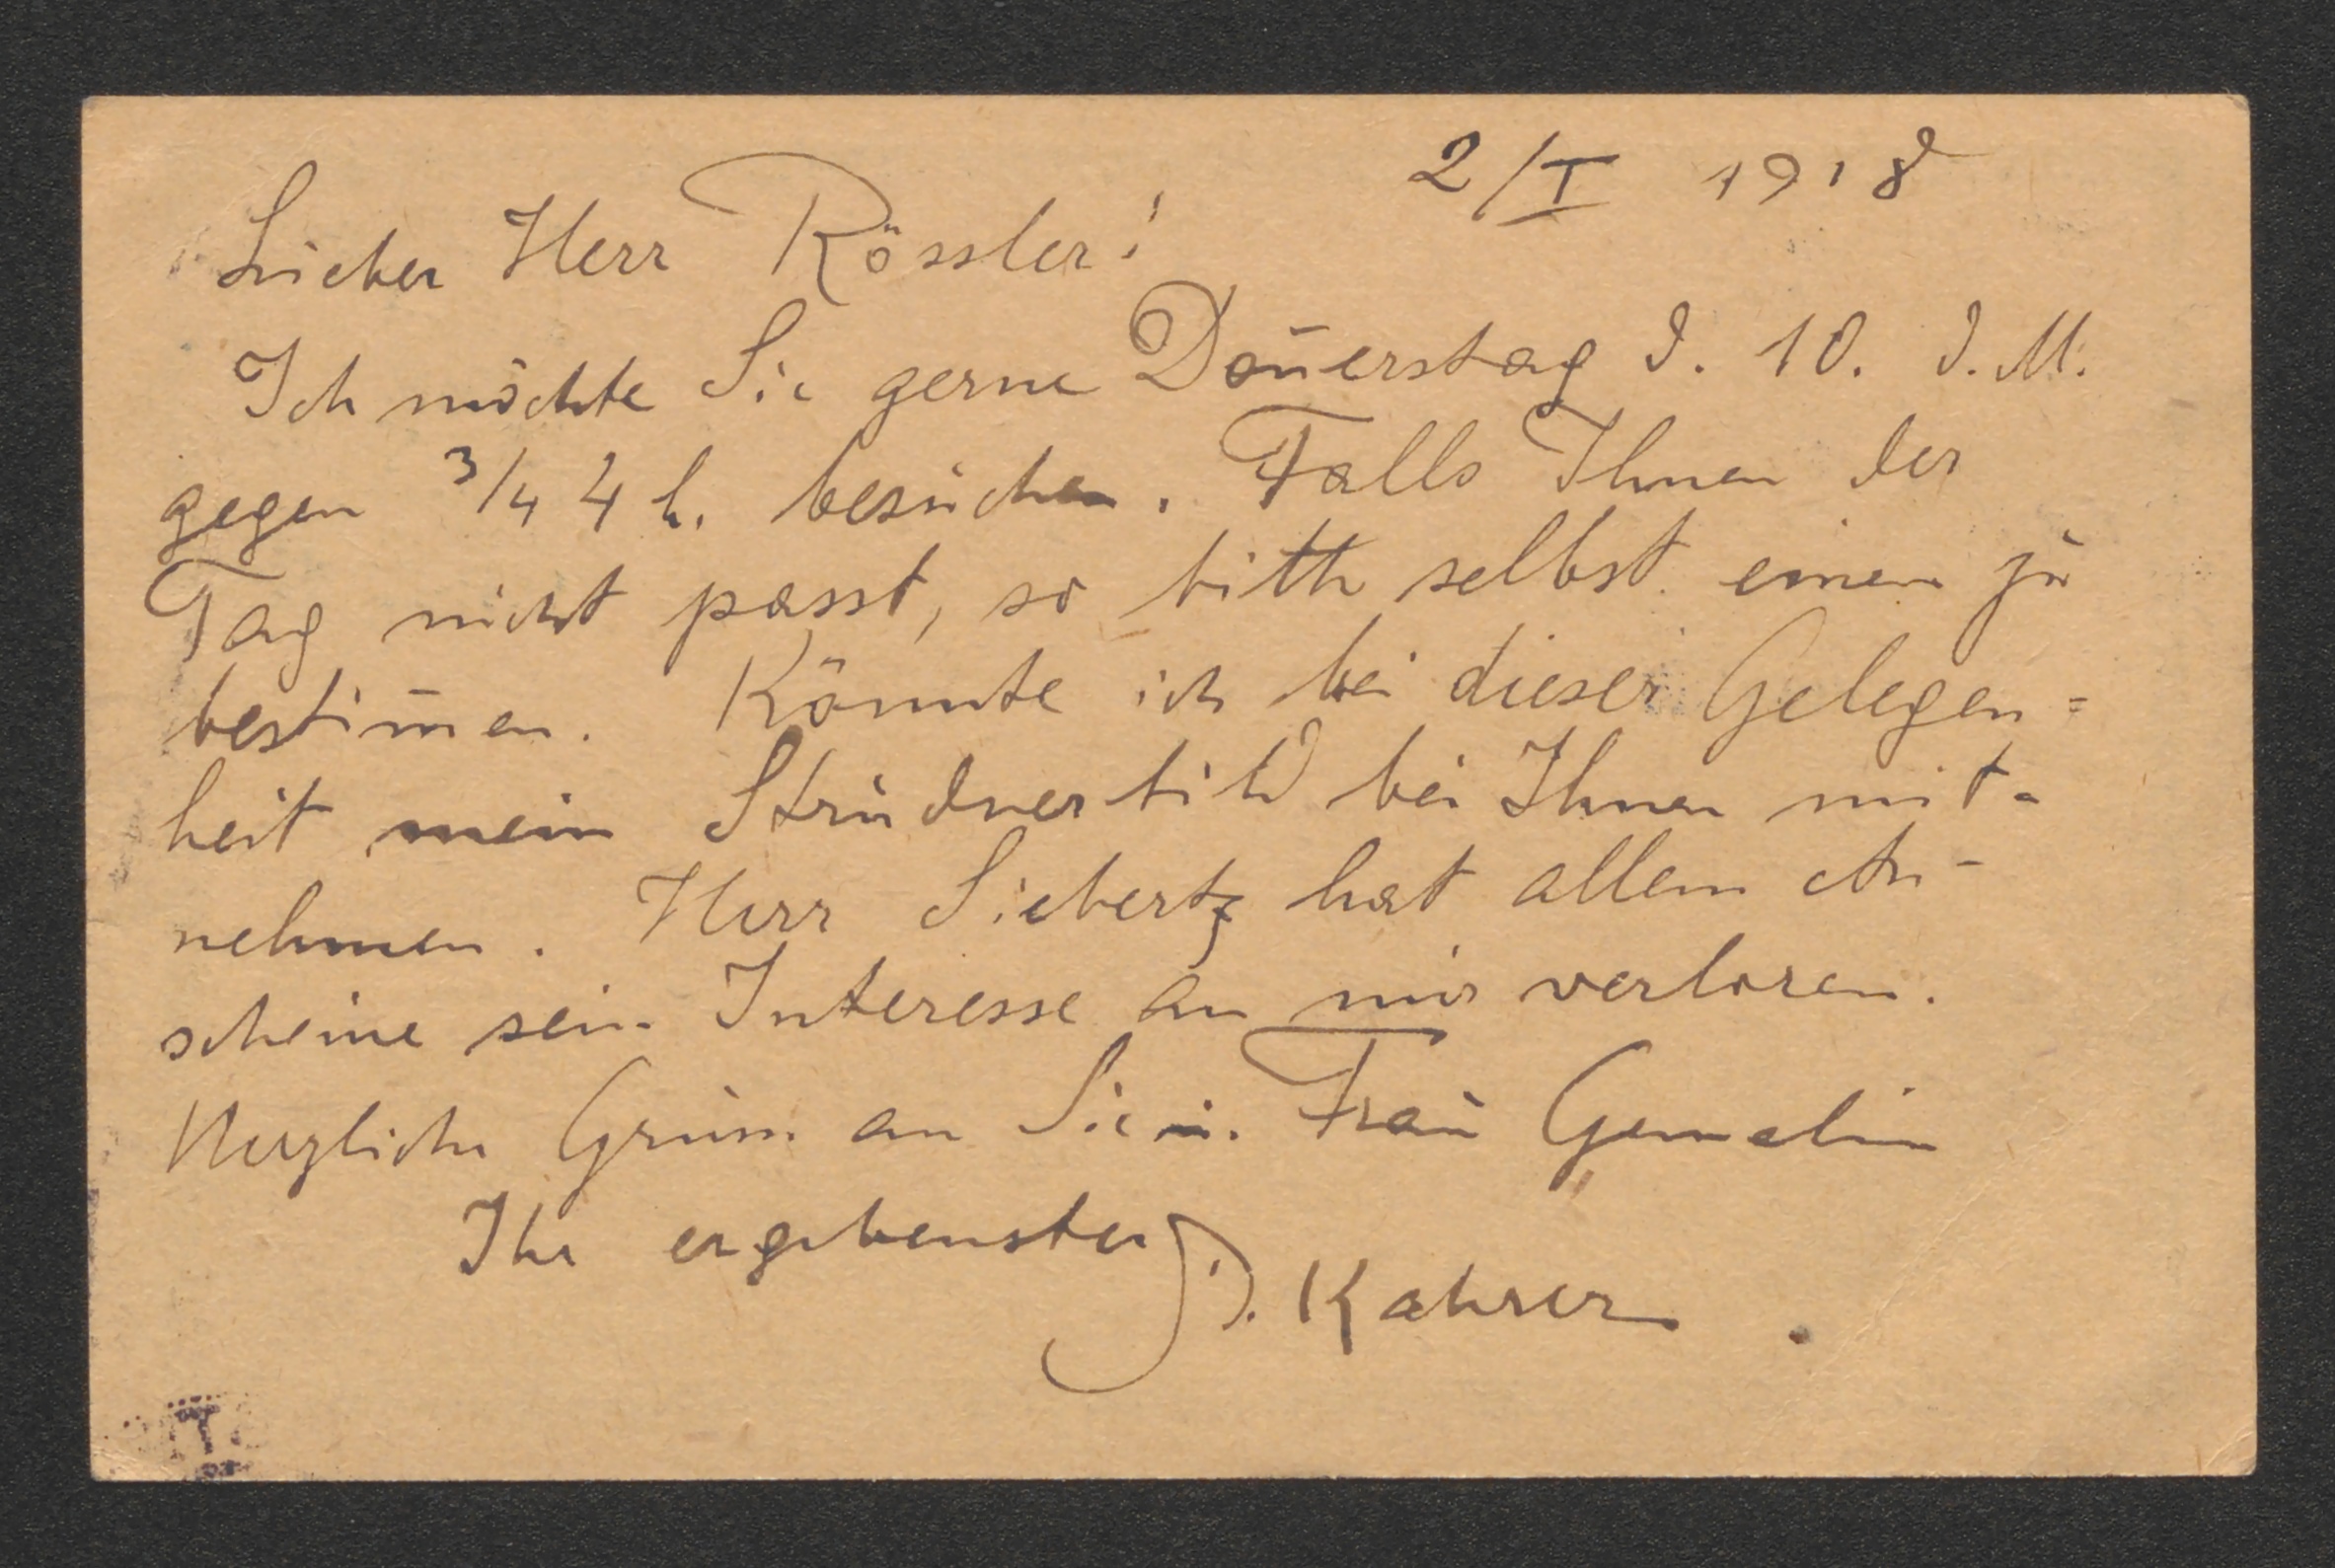 2/I 1918
Lieber Herr Rössler!
Ich möchte Sie gerne Don̄erstag d. 10. d. M.
gegen ¾ 4 h. besuchen. Falls Ihnen der
Tag nicht passt, so bitte selbst einen zu
bestim̄en. Könnte ich bei dieser Gelegen=
heit mein bei Ihnen mit-
nehmen. Herr Siebertz hat allem An-
scheine sein Interesse an mir verloren.
Herzliche Grüsse an Sie u. Frau Gemalin
Ihr ergebenster
J. Kahrer